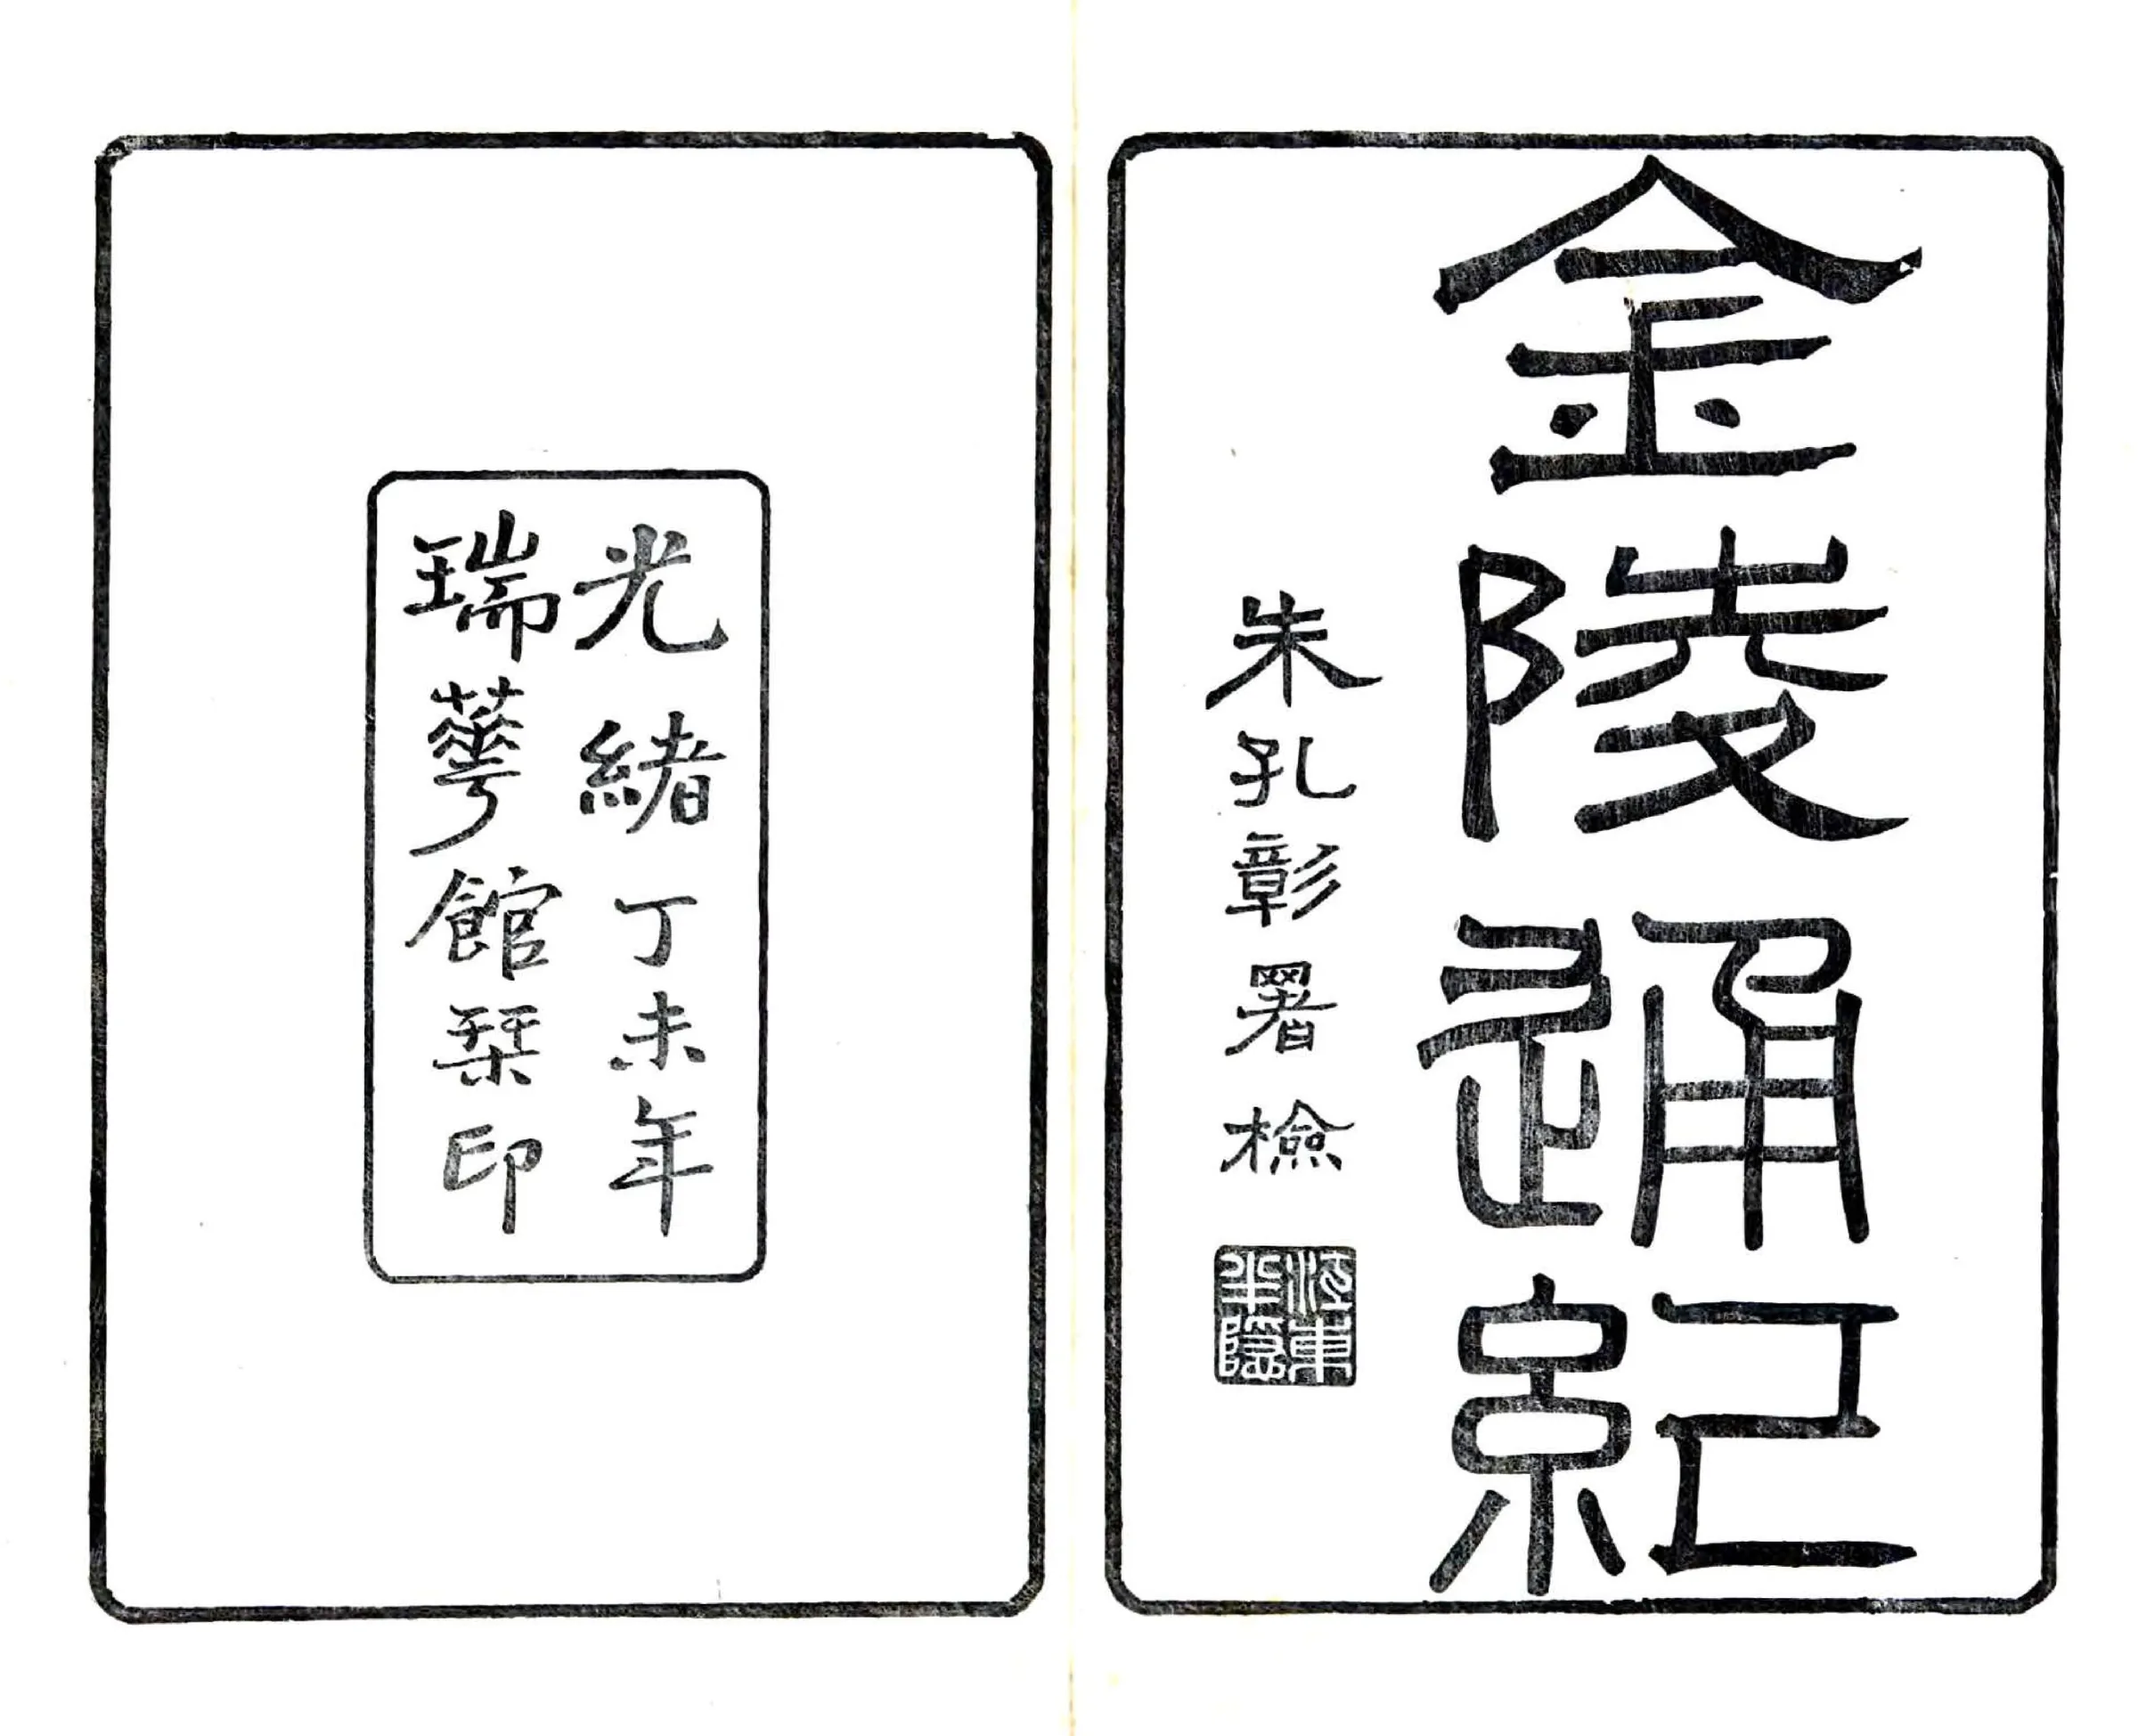 金陵通紀
朱孔彰署檢
江東半隱
光緒丁未年
瑞華館栞印